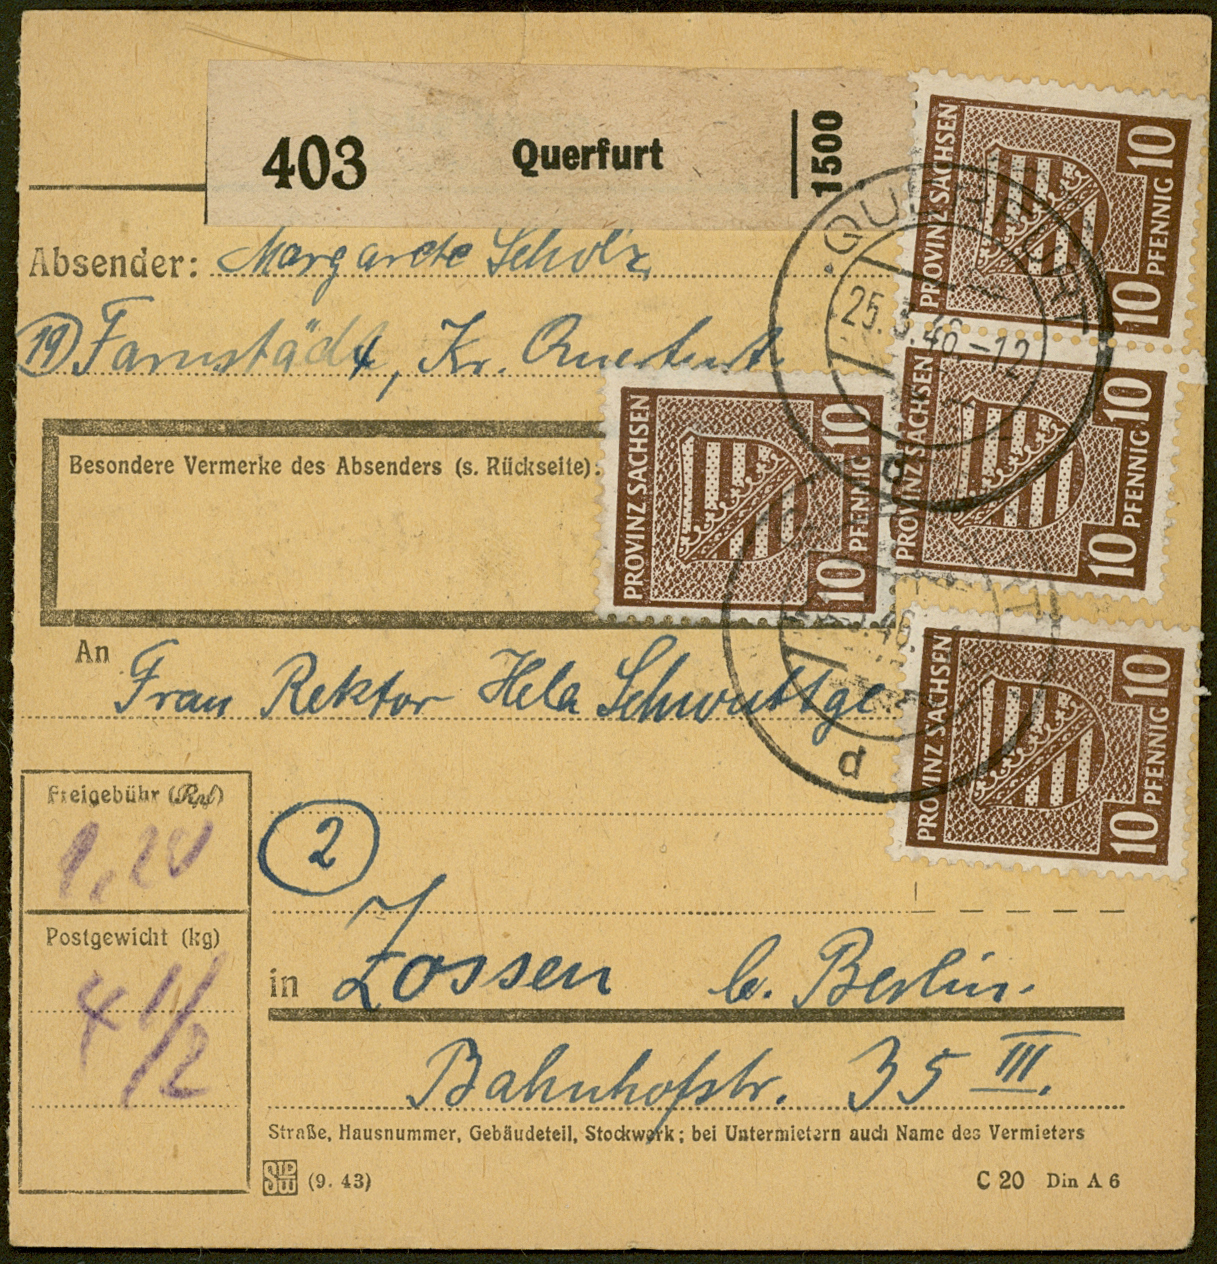 403 Querfurt 1500
Absender: Margarete Scholz
(19) Farnstädt, Kr. Querfurt
Besondere Vermerke des Absenders (s. Rückseite):
PROVINZ SACHSEN 10 10 PFENNIG
PROVINZ SACHSEN 10 10 PFENNIG
PROVINZ SACHSEN 10 10 PFENNIG
PROVINZ SACHSEN 10 10 PFENNIG
QUERFURT
25.3.46-12
d
d
An Frau Rektor Hela Schwuttge
Freigebühr (Rpf)
1,20
(2)
Postgewicht (kg)
4 1/2
in Zossen b. Berlin.
Bahnhofstr. 35 III.
Straße, Hausnummer, Gebäudeteil, Stockwerk; bei Untermietern auch Name des Vermieters
(9. 43)
C 20 Din A 6